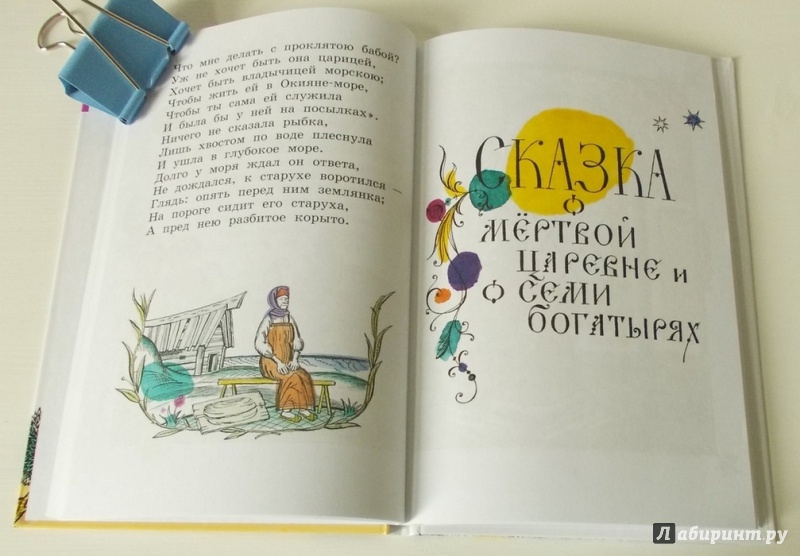 Что мне делать с проклятою бабой?
Уж не хочет быть она царицей,
Хочет быть владычицей морскою;
Чтобы жить ей в Окияне-море,
Чтобы ты сама ей служила
И была бы у ней на посылках».
Ничего не сказала рыбка,
Лишь хвостом по воде плеснула
И ушла в глубокое море.
Долго у моря ждал он ответа,
Не дождался, к старухе воротился —
Глядь: опять перед ним землянка;
На пороге сидит его старуха,
А пред нею разбитое корыто.
СКАЗКА
О
МЁРТВОЙ
ЦАРЕВНЕ И
О СЕМИ
БОГАТЫРЯХ
Лабиринт.ру